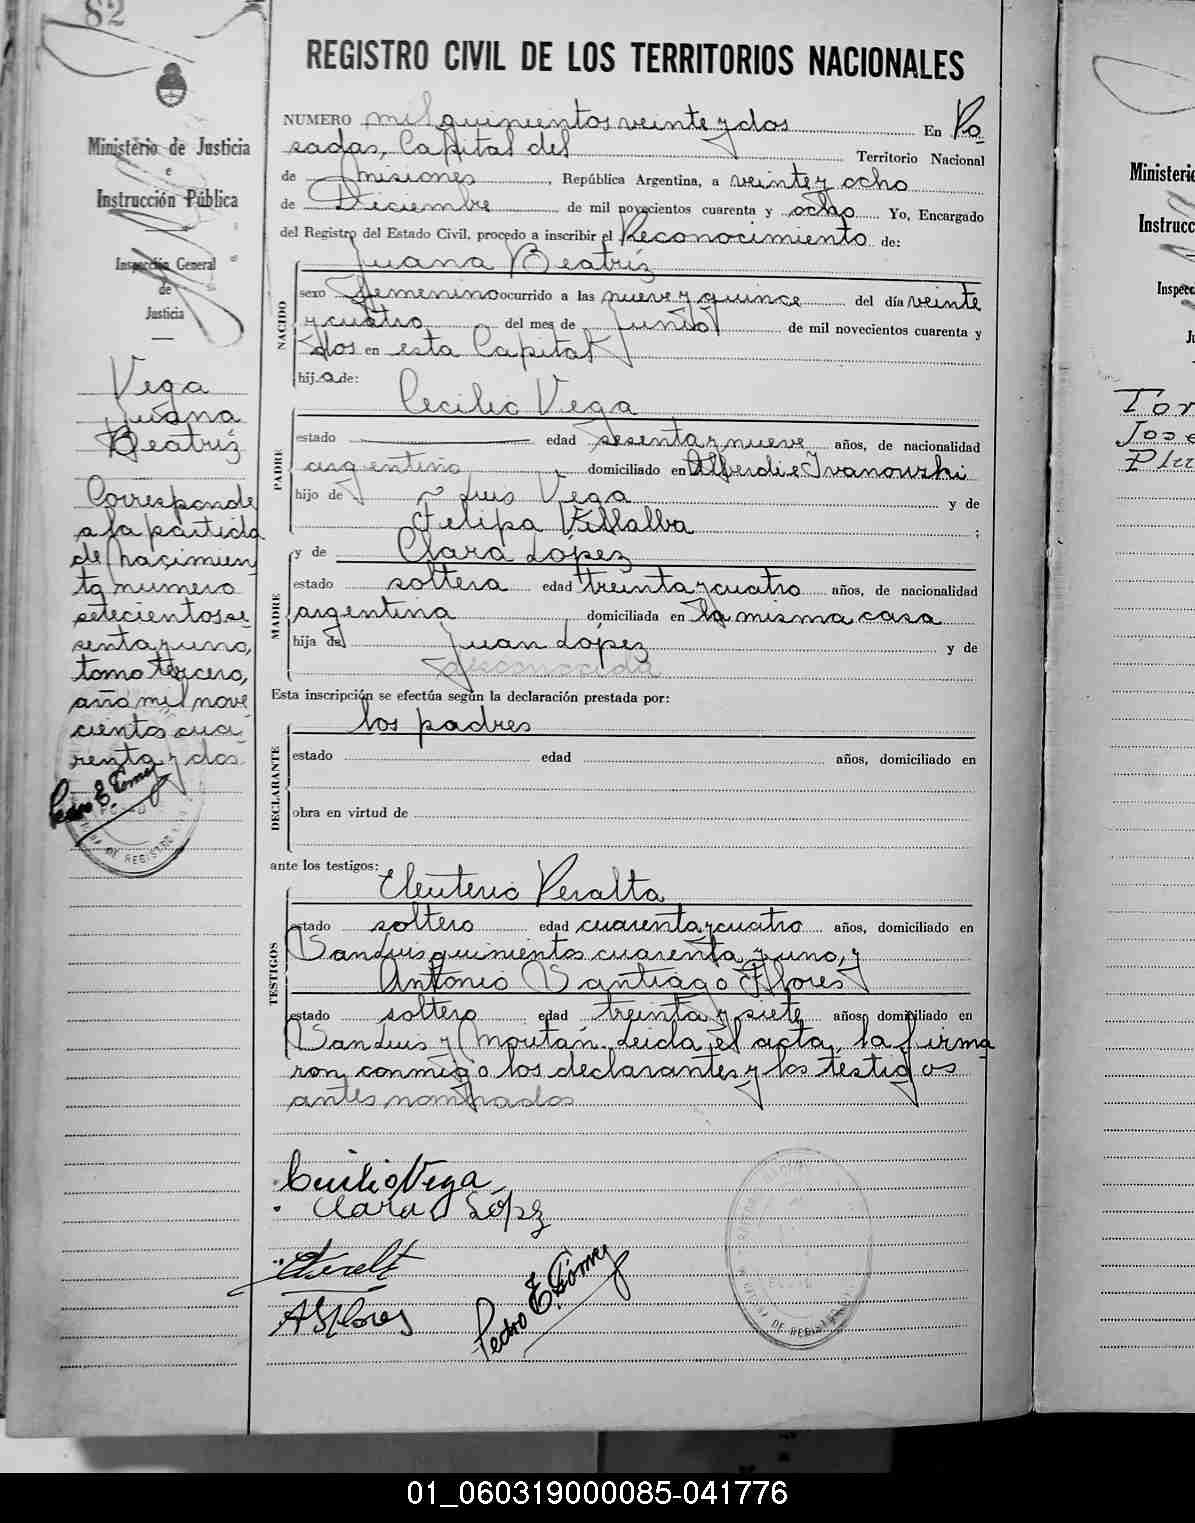 82
Ministerio de Justicia
e
Instrucción Pública
Inspección General
de
Justicia
Vega
Juana
Beatriz
Corresponde
a la partida
de nacimien
to numero
setecientos se
senta y uno,
tomo tercero,
año mil nove
cientos cua
renta y dos
Pedro E. Gómez
REGISTRO CIVIL DE LOS TERRITORIOS NACIONALES
NUMERO mil quinientos veinte y dos En Po
sadas, Capital del Territorio Nacional
de Misiones, República Argentina, a veinte y ocho
de Diciembre de mil novecientos cuarenta y ocho Yo, Encargado
del Registro del Estado Civil, procedo a inscribir el Reconocimiento de:
Juana Beatriz
NACIDO
sexo femenino ocurrido a las nueve y quince del día veinte
y cuatro del mes de junio de mil novecientos cuarenta y
dos en esta Capital
hija de:
Cecilio Vega
PADRE
estado edad sesenta y nueve años, de nacionalidad
argentino domiciliado en Alberdi e Ivanowski
hijo de Luis Vega y de
Felipa Villalba ;
y de Clara López
MADRE
estado soltera edad treinta y cuatro años, de nacionalidad
argentina domiciliada en la misma casa
hija de Juan López y de
desconocida
Esta inscripción se efectúa según la declaración prestada por:
los padres
DECLARANTE
estado edad años, domiciliado en
obra en virtud de
ante los testigos:
Eleuterio Peralta
TESTIGOS
estado soltero edad cuarenta y cuatro años, domiciliado en
San Luis quinientos cuarenta y uno, y
Antonio Santiago Flores
estado soltero edad treinta y siete años, domiciliado en
San Luis y Moután. Leida el acta, la firma
ron conmigo los declarantes y los testigos
antes nombrados
Cecilio Vega
Clara López
EPeralta
ASFlores
Pedro E. Gómez
Ministerio
Instrucc
Inspecc
Ju
Tor
José
Plu
01_060319000085-041776